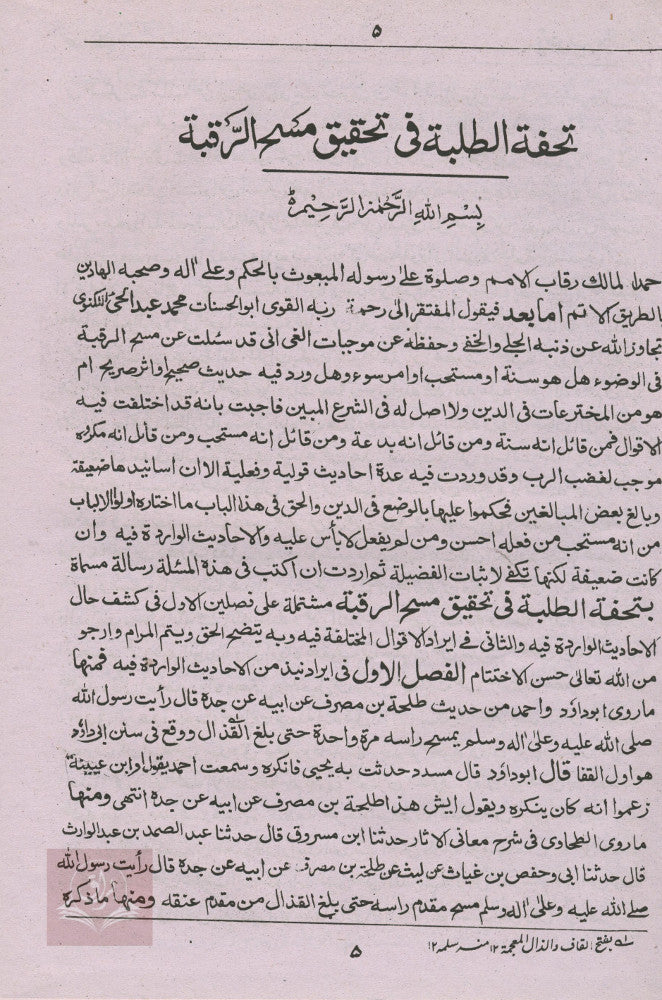 ۵
تحفة الطلبة فى تحقيق مسح الرّقبة
بِسْمِ اللهِ الرَّحْمٰنِ الرَّحِيْمِ
حمدا لمالك رقاب الامم وصلوة على رسوله المبعوث بالحكم وعلى اله وصحبه الهادين
الطريق الاتم اما بعد فيقول المفتقر الى رحمة ربه القوى ابو الحسنات محمد عبد الحى اللكنوى
تجاوز الله عن ذنبه الجلى والخفى وحفظه عن موجبات الغى انى قد سئلت عن مسح الرقبة
فى الوضوء هل هو سنة او مستحب او امر سوء وهل ورد فيه حديث صحيح او اثر صريح ام
هو من المخترعات فى الدين ولا اصل له فى الشرع المبين فاجبت بانه قد اختلفت فيه
الاقوال فمن قائل انه سنة ومن قائل انه بدعة ومن قائل انه مستحب ومن قائل انه مكروه
موجب لغضب الرب وقد وردت فيه عدة احاديث قولية وفعلية الا ان اسانيدها ضعيفة
وبالغ بعض المبالغين فحكموا عليها بالوضع فى الدين والحق فى هذا الباب ما اختاره اولو الالباب
من انه مستحب من فعله احسن ومن لم يفعل لا بأس عليه والاحاديث الواردة فيه وان
كانت ضعيفة لكنها تكفى لاثبات الفضيلة ثم اردت ان اكتب فى هذه المسئلة رسالة مسماة
بتحفة الطلبة فى تحقيق مسح الرقبة مشتملة على فصلين الاول فى كشف حال
الاحاديث الواردة فيه والثانى فى ايراد الاقوال المختلفة فيه وبه يتضح الحق ويتم المرام وارجو
من الله تعالى حسن الاختتام الفصل الاول فى ايراد نبذ من الاحاديث الواردة فيه فمنها
ما روى ابو داؤد واحمد من حديث طلحة بن مصرف عن ابيه عن جده قال رأيت رسول الله
صلى الله عليه وعلى اله وسلم يمسح راسه مرة واحدة حتى بلغ القذال ووقع فى سنن ابى داؤد
هو اول القفا قال ابو داؤد قال مسدد حدثت به يحيى فانكره وسمعت احمد يقول ابن عيينة
زعموا انه كان ينكره ويقول ايش هذا طلحة بن مصرف عن ابيه عن جده انتهى ومنها
ما روى الطحاوى فى شرح معانى الاثار حدثنا ابن مسروق قال حدثنا عبد الصمد بن عبد الوارث
قال حدثنا ابى وحفص بن غياث عن ليث عن طلحة بن مصرف عن ابيه عن جده قال رأيت رسول الله
صلى الله عليه وعلى اله وسلم مسح مقدم راسه حتى بلغ القذال من مقدم عنقه ومنها ما ذكره
له بفتح القاف والذال المعجمة ١٢ منه سلمه ١٢
۵